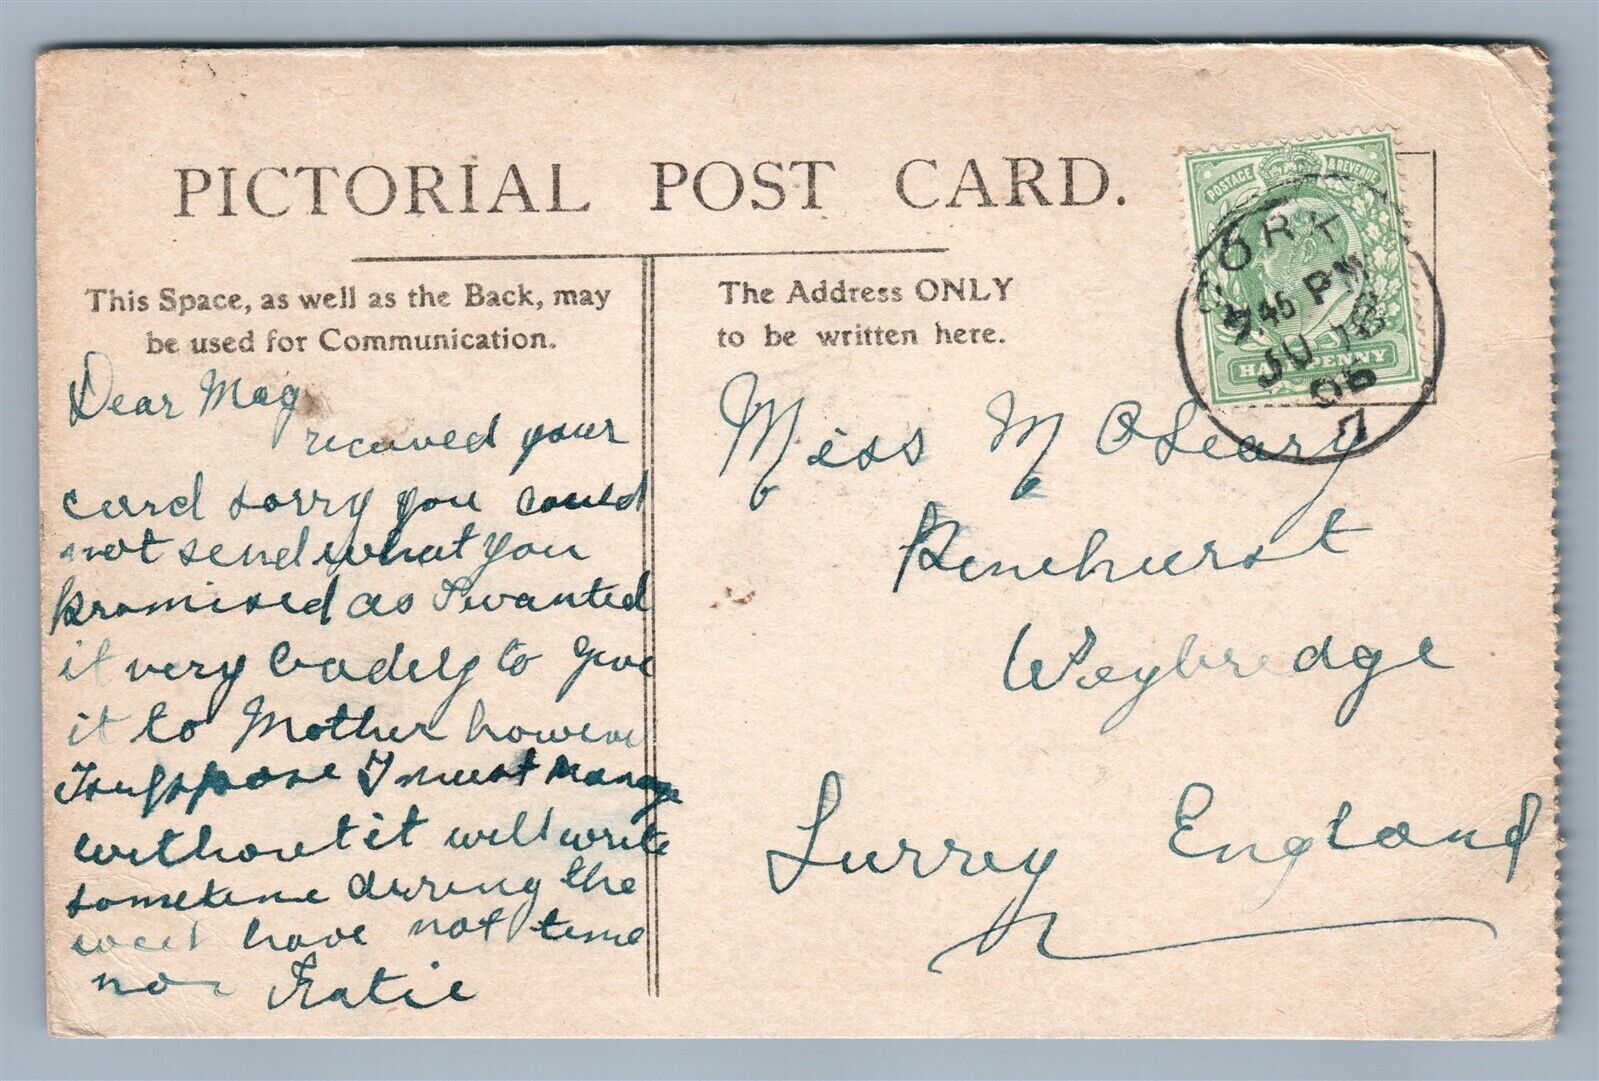 PICTORIAL POST CARD.
This Space, as well as the Back, may
be used for Communication.
The Address ONLY
to be written here.
POSTAGE & REVENUE
HALFPENNY
CORK
.45 PM
JU 18
06
7
Dear Mag
received your
card sorry you could
not send what you
promised as I wanted
it very badely to give
it to Mother however
I suppose I must manage
without it will write
sometime durring the
week have not time
now Katie
Miss M O'Leary
Pinehurst
Weybredge
Surrey England